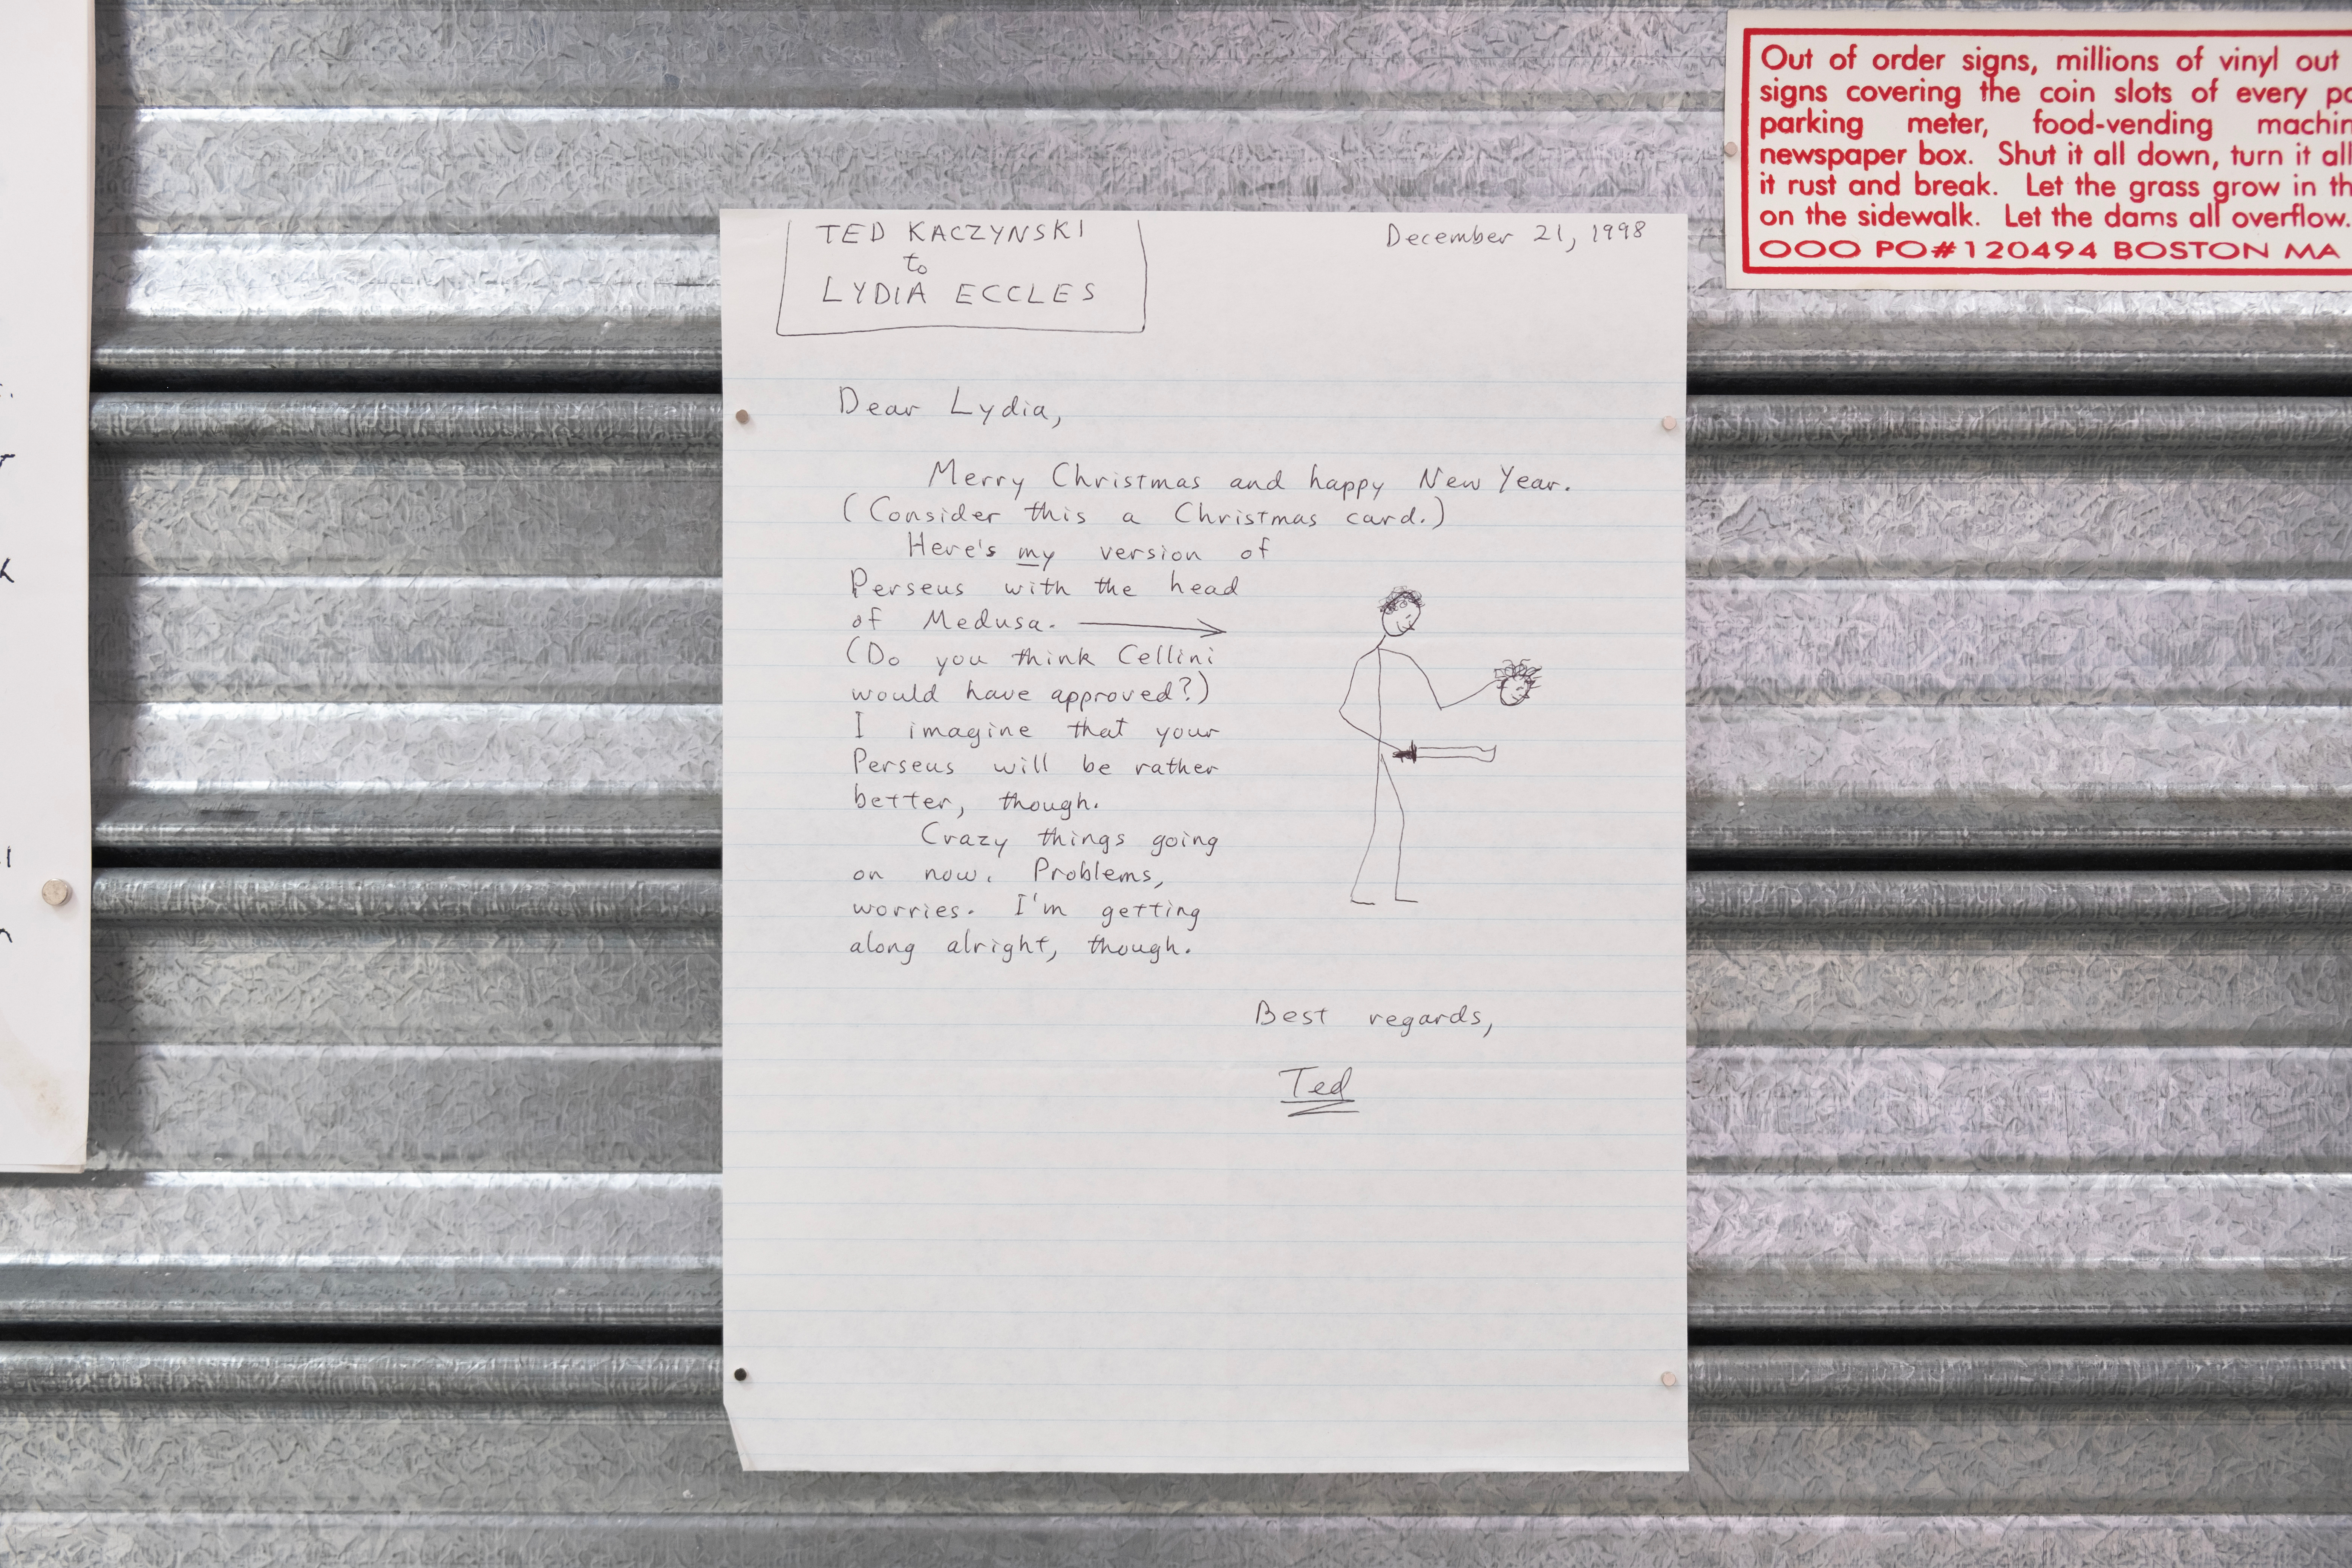 TED KACZYNSKI
to
LYDIA ECCLES
December 21, 1998
Dear Lydia,
Merry Christmas and happy New Year.
(Consider this a Christmas card.)
Here's my version of
Perseus with the head
of Medusa.
(Do you think Cellini
would have approved?)
I imagine that your
Perseus will be rather
better, though.
Crazy things going
on now. Problems,
worries. I'm getting
along alright, though.
Best regards,
Ted
Out of order signs, millions of vinyl out
signs covering the coin slots of every
parking meter, food-vending
newspaper box. Shut it all down, turn it all
it rust and break. Let the grass grow in
on the sidewalk. Let the dams all overflow.
OOO PO#120494 BOSTON MA